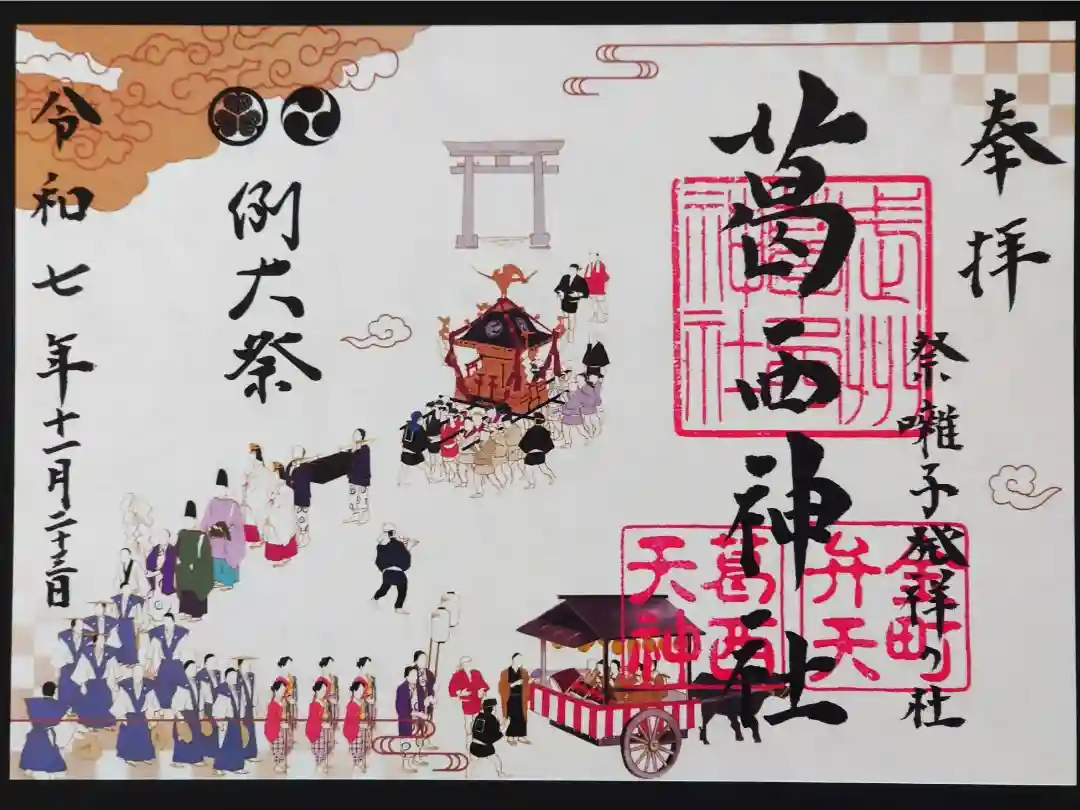 奉拝
祭囃子発祥の社
葛西神社
武州
葛西
神社
金町
弁天
葛西
天神
例大祭
令和七年十一月二十三日